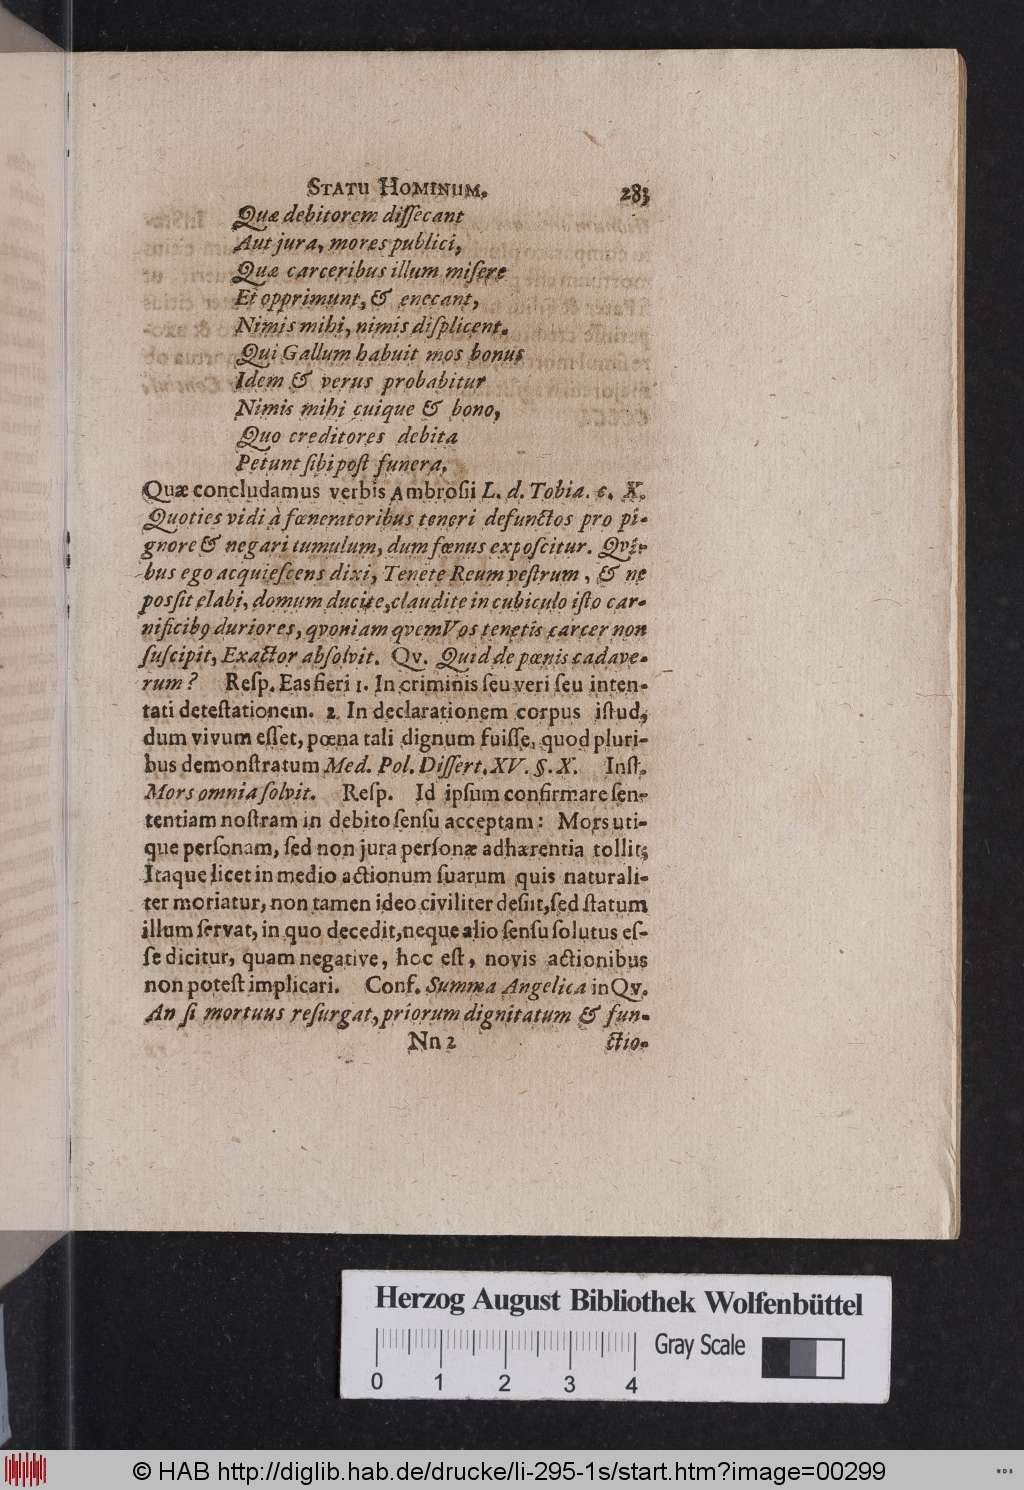 STATU HOMINUM. 283
Quæ debitorem diſſecant
Aut jura, mores publici,
Quæ carceribus illum miſere
Et opprimunt, & enecant,
Nimis mihi, nimis diſplicent.
Qui Gallum habuit mos bonus
Idem & verus probabitur
Nimis mihi cuique & bono,
Quo creditores debita
Petunt ſibi poſt funera.
Quæ concludamus verbis Ambroſii L. d. Tobia. c. X.
Quoties vidi à fœneratoribus teneri defunctos pro pi-
gnore & negari tumulum, dum fœnus expoſcitur. Qvi-
bus ego acquieſcens dixi, Tenete Reum veſtrum, & ne
poſſit elabi, domum ducite, claudite in cubiculo iſto car-
nificibꝰ duriores, qvoniam qvem Vos tenetis carcer non
ſuſcipit, Exactor abſolvit. Qv. Quid de pœnis cadave-
rum? Reſp. Eas fieri 1. In criminis ſeu veri ſeu inten-
tati deteſtationem. 2. In declarationem corpus iſtud,
dum vivum eſſet, pœna tali dignum fuiſſe, quod pluri-
bus demonſtratum Med. Pol. Diſſert. XV. §. X. Inſt.
Mors omnia ſolvit. Reſp. Id ipſum confirmare ſen-
tentiam noſtram in debito ſenſu acceptam: Mors uti-
que perſonam, ſed non jura perſonæ adhærentia tollit;
Itaque licet in medio actionum ſuarum quis naturali-
ter moriatur, non tamen ideo civiliter deſiit, ſed ſtatum
illum ſervat, in quo decedit, neque alio ſenſu ſolutus eſ-
ſe dicitur, quam negative, hoc eſt, novis actionibus
non poteſt implicari. Conf. Summa Angelica in Qv.
An ſi mortuus reſurgat, priorum dignitatum & fun-
Nn 2 ctio-
Herzog August Bibliothek Wolfenbüttel
Gray Scale
0 1 2 3 4
© HAB http://diglib.hab.de/drucke/li-295-1s/start.htm?image=00299